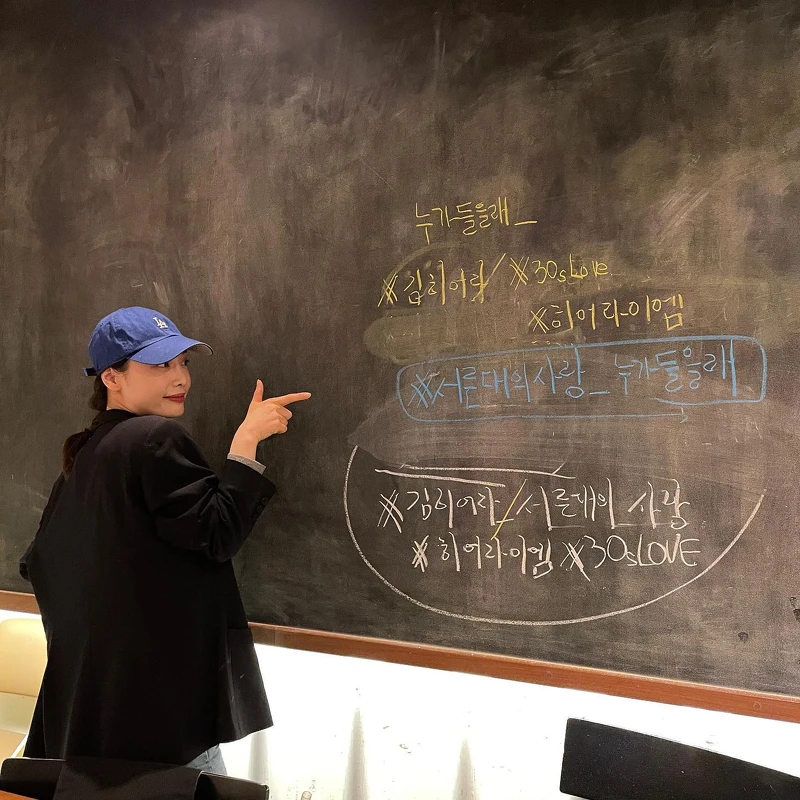 LA
누가 들을래_
#김히어라/ #30sLove
#히어라이엠
#서른대의사랑_누가들을래
#김히어라_서른대의_사랑
#히어라이엠 #30sLOVE